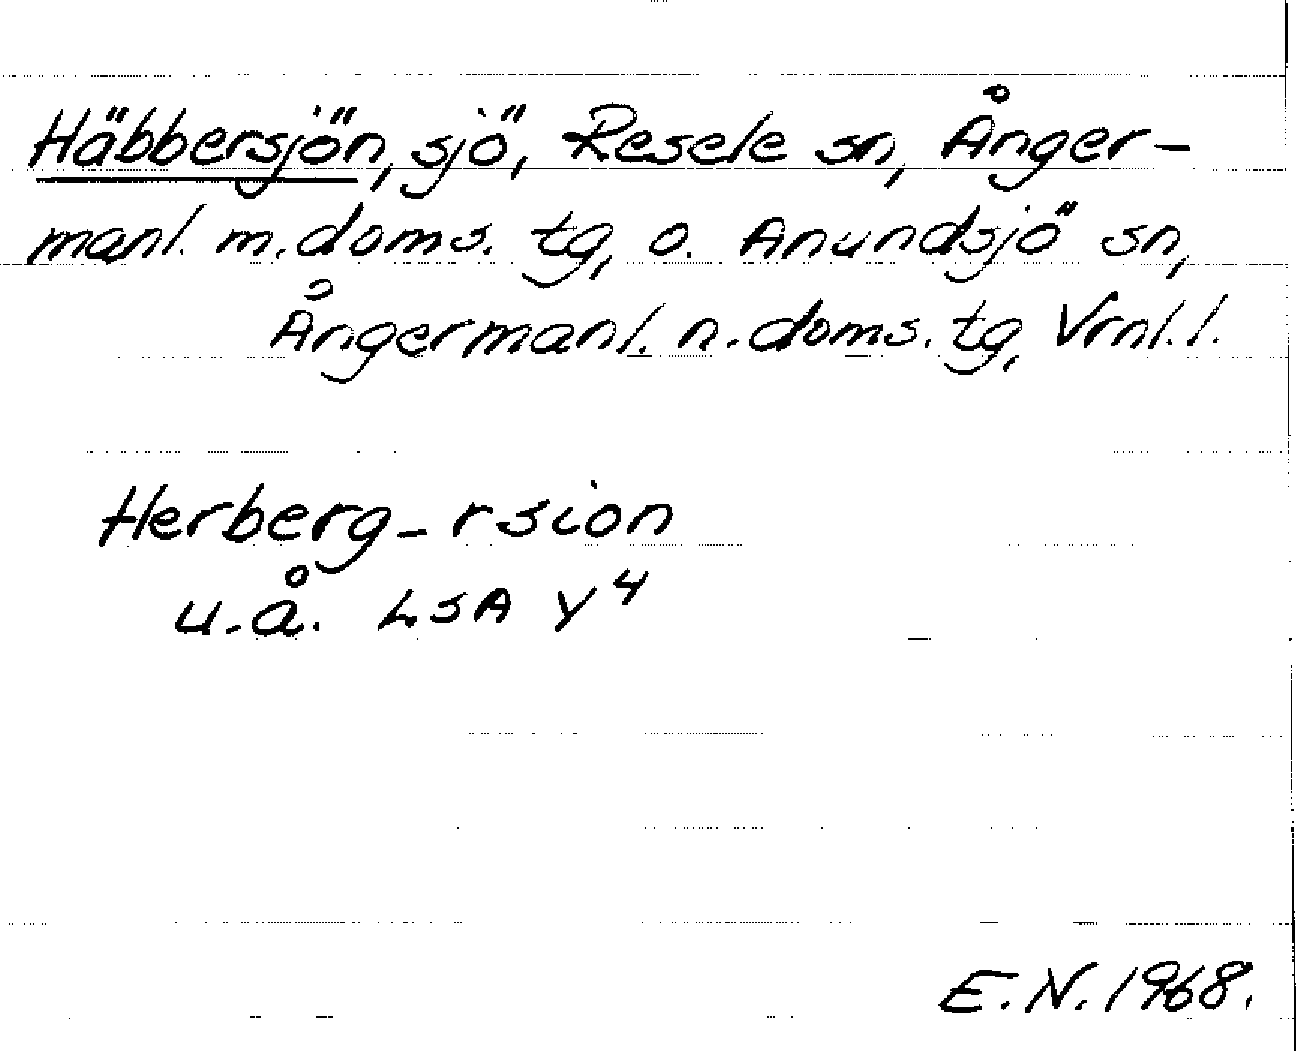 Häbbersjön, sjö, Resele sn, Ånger-
manl. m. doms. tg, o. Anundsjö sn,
Ångermanl. n. doms. tg, Vrnl. l.
Herberg-rsion
u.å. LSA Y4
E. N. 1968.